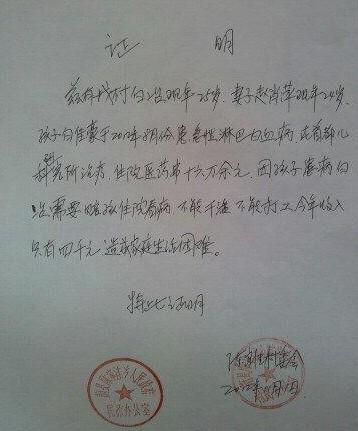 证 明
兹有我村白 现年25岁 妻子赵肖萍现年24岁
孩子白佳豪于2012年8月份患急性淋巴白血病 在首都儿
科研所治疗 住院医药费十六万余元 因孩子患病白
需要陪孩住院看病 不能干活 不能打工今年收入
只有四千元 造成家庭生活困难。
特此 证明
村委会
2012年 月 日
人民政府
民政办公室